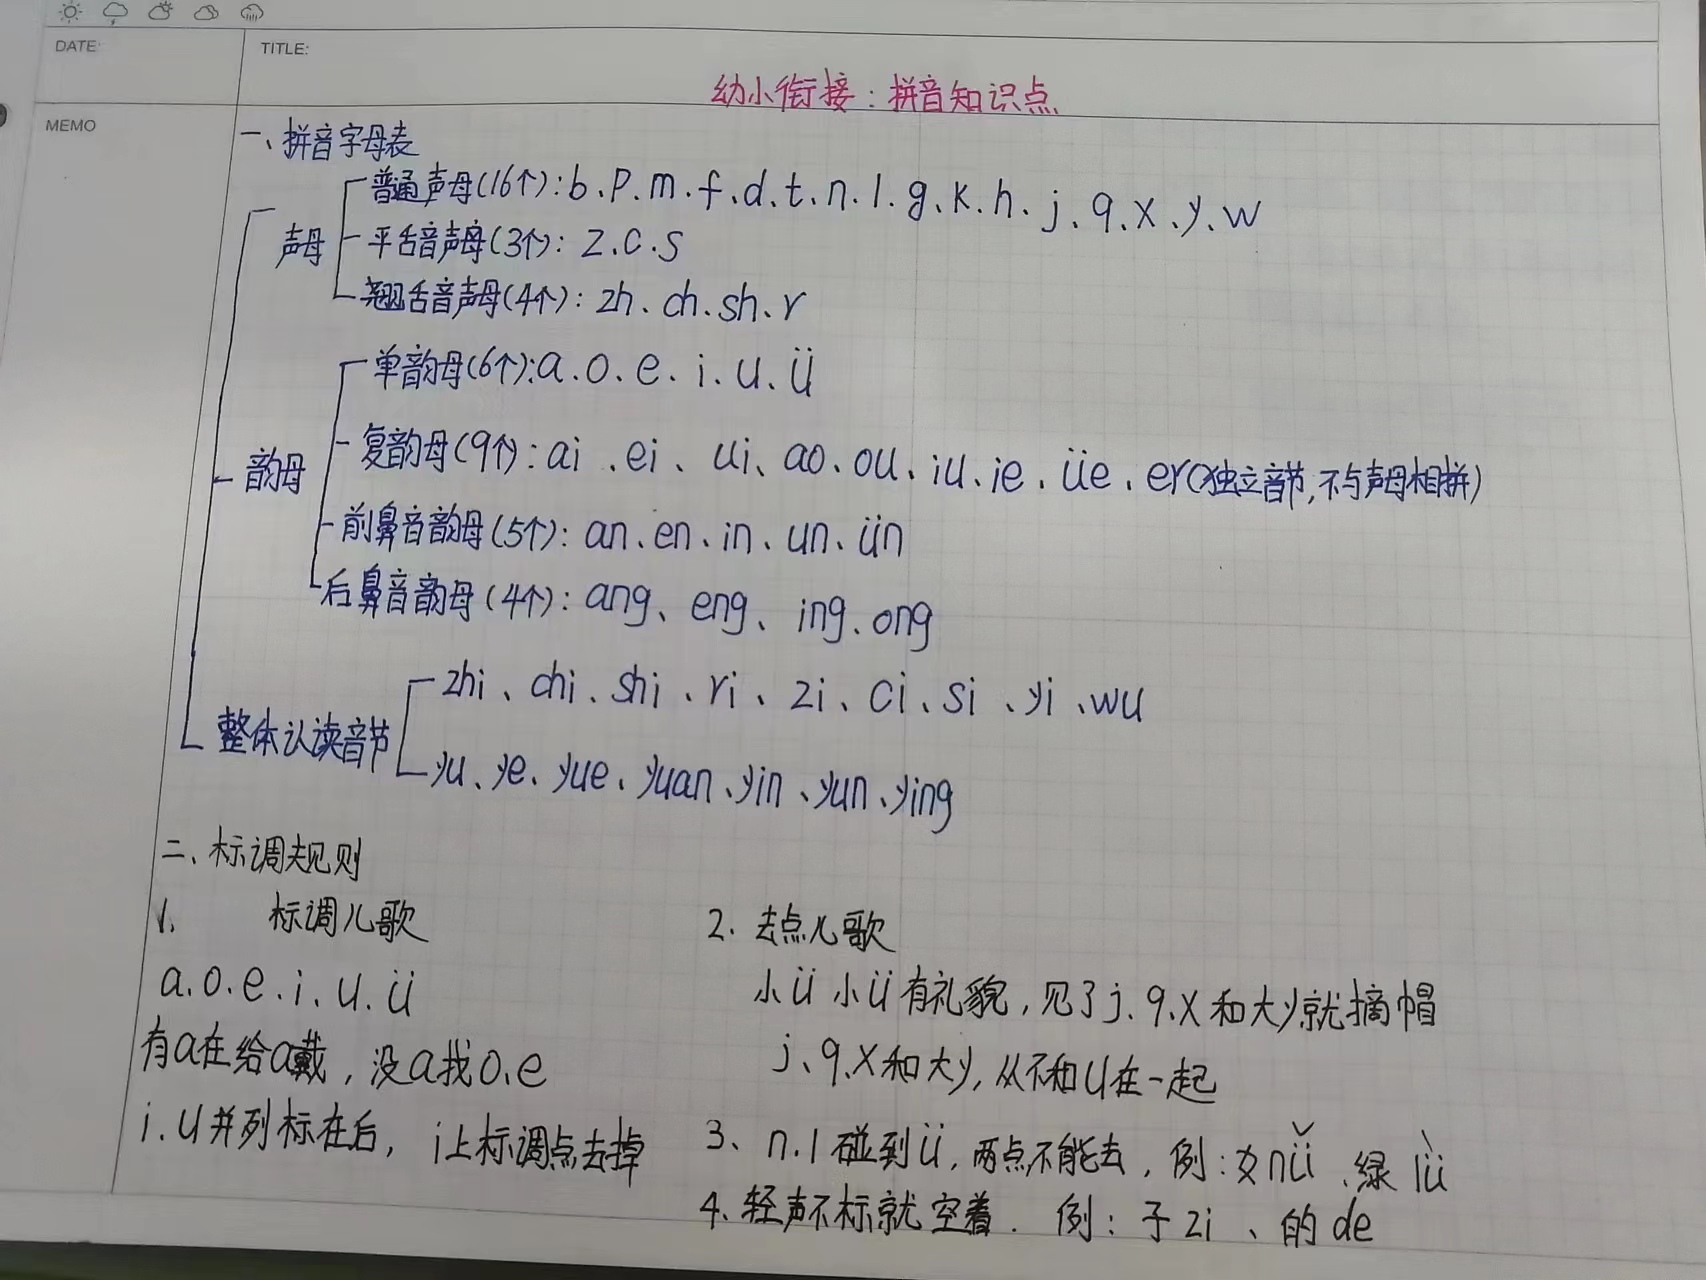 DATE:
TITLE:
幼小衔接:拼音知识点
MEMO
一、拼音字母表
声母
普通声母(16个):b、p、m、f、d、t、n、l、g、k、h、j、q、x、y、w
平舌音声母(3个):z、c、s
翘舌音声母(4个):zh、ch、sh、r
韵母
单韵母(6个):a、o、e、i、u、ü
复韵母(9个):ai、ei、ui、ao、ou、iu、ie、üe、er(独立音节,不与声母相拼)
前鼻音韵母(5个):an、en、in、un、ün
后鼻音韵母(4个):ang、eng、ing、ong
整体认读音节
zhi、chi、shi、ri、zi、ci、si、yi、wu
yu、ye、yue、yuan、yin、yun、ying
二、标调规则
1、标调儿歌
a、o、e、i、u、ü
有a在给a戴,没a找o、e
i、u并列标在后,i上标调点去掉
2、去点儿歌
小ü小ü有礼貌,见了j、q、x和大y就摘帽
j、q、x和大y,从不和u在一起
3、n、l碰到ü,两点不能去,例:女nǚ、绿lǜ
4、轻声不标就空着。例:子zi、的de